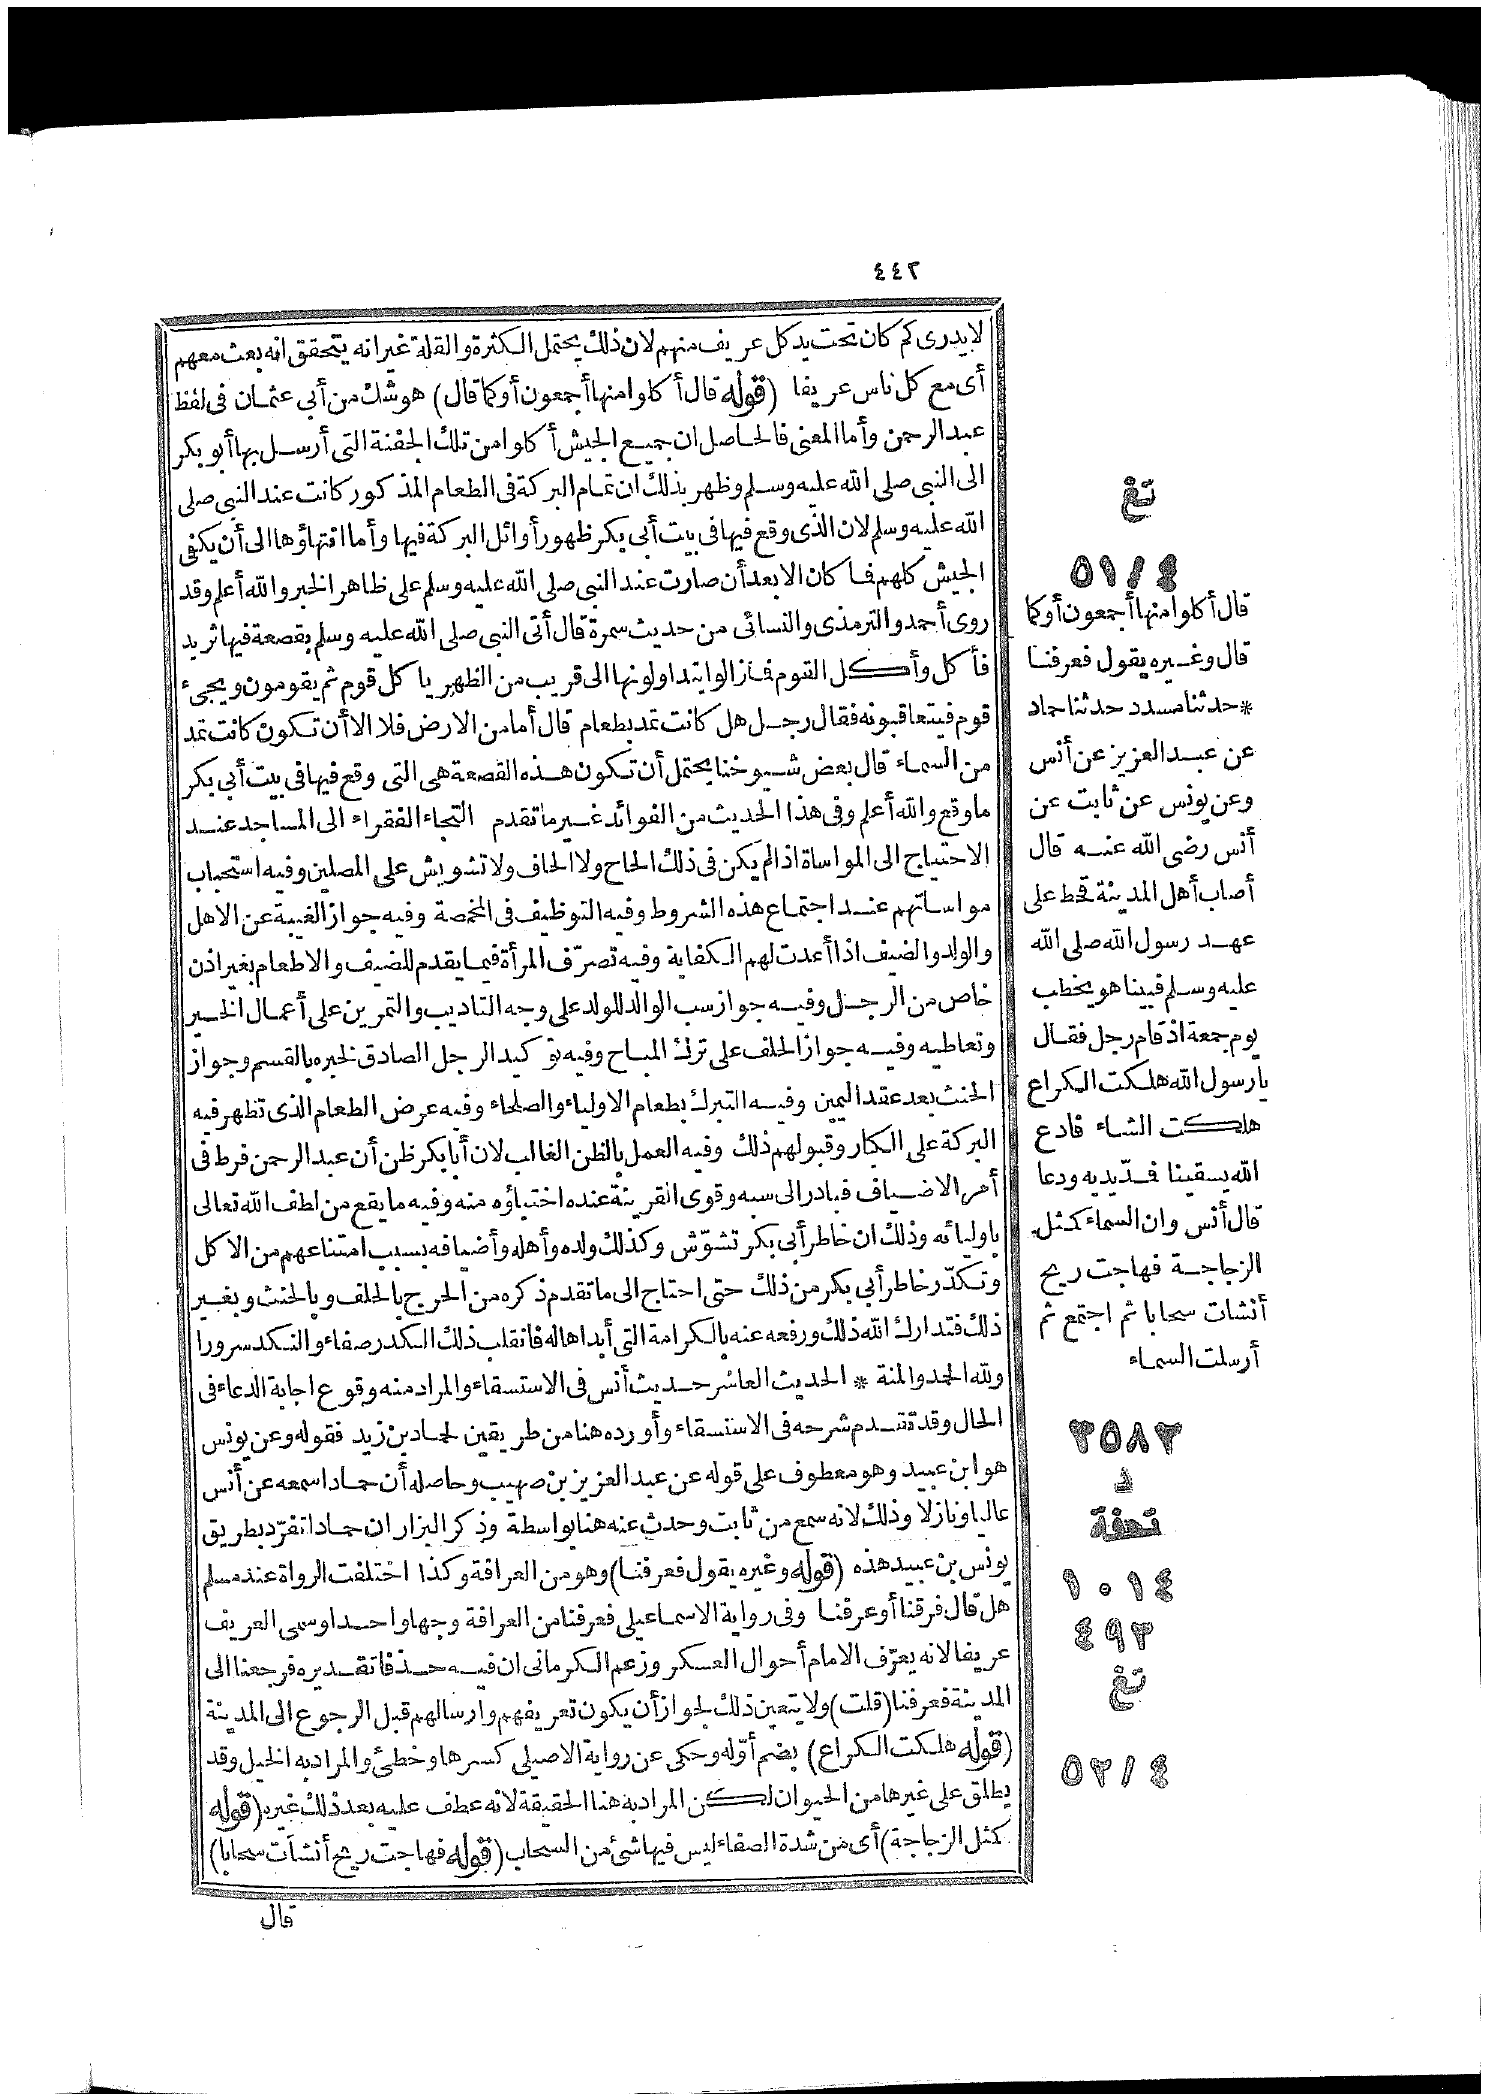 ٤٤٢
لا يدرى كم كان تحت يد كل عريف منهم لان ذلك يحتمل الكثرة والقلة غير انه يتحقق انه بعث معهم
أى مع كل ناس عريفا (قوله قال أكلوا منها أجمعون أو كما قال) هو شك من أبى عثمان فى لفظ
عبد الرحمن وأما المعنى فالحاصل ان جميع الجيش أكلوا من تلك الجفنة التى أرسل بها أبو بكر
الى النبى صلى الله عليه وسلم وظهر بذلك ان تمام البركة فى الطعام المذكور كانت عند النبى صلى
الله عليه وسلم لان الذى وقع فيها فى بيت أبى بكر ظهور أوائل البركة فيها وأما انتهاؤها الى أن يكفى
الجيش كلهم فما كان الا بعد أن صارت عند النبى صلى الله عليه وسلم على ظاهر الخبر والله أعلم وقد
روى أحمد والترمذى والنسائى من حديث سمرة قال أتى النبى صلى الله عليه وسلم بقصعة فيها ثريد
فأكل وأكل القوم فما زالوا يتداولونها الى قريب من الظهر يأكل قوم ثم يقومون ويجىء
قوم فيتعاقبونه فقال رجل هل كانت تمد بطعام قال أما من الارض فلا الا أن تكون كانت تمد
من السماء قال بعض شيوخنا يحتمل أن تكون هذه القصعة هى التى وقع فيها فى بيت أبى بكر
ما وقع والله أعلم وفى هذا الحديث من الفوائد غير ما تقدم التجاء الفقراء الى المساجد عند
الاحتياج الى المواساة اذا لم يكن فى ذلك الحاح ولا الحاف ولا تشويش على المصلين وفيه استحباب
مواساتهم عند اجتماع هذه الشروط وفيه التوظيف فى المخمصة وفيه جواز الغيبة عن الاهل
والولد والضيف اذا أعدت لهم الكفاية وفيه تصرّف المرأة فيما يقدم للضيف والاطعام بغير اذن
خاص من الرجل وفيه جواز سب الوالد للولد على وجه التاديب والتمرين على أعمال الخير
وتعاطيه وفيه جواز الحلف على ترك المباح وفيه توكيد الرجل الصادق لخبره بالقسم وجواز
الحنث بعد عقد اليمين وفيه التبرك بطعام الاولياء والصلحاء وفيه عرض الطعام الذى تظهر فيه
البركة على الكبار وقبولهم ذلك وفيه العمل بالظن الغالب لان أبا بكر ظن أن عبد الرحمن فرط فى
أمر الاضياف فبادر الى سبه وقوى القرينة عنده اختباؤه منه وفيه ما يقع من لطف الله تعالى
باوليائه وذلك ان خاطر أبى بكر تشوّش وكذلك ولده وأهله وأضيافه بسبب امتناعهم من الاكل
وتكدّر خاطر أبى بكر من ذلك حتى احتاج الى ما تقدم ذكره من الحرج بالحلف وبالحنث وبغير
ذلك فتدارك الله ذلك ورفعه عنه بالكرامة التى أبداها له فانقلب ذلك الكدر صفاء والنكد سرورا
ولله الحمد والمنة * الحديث العاشر حديث أنس فى الاستسقاء والمراد منه وقوع اجابة الدعاء فى
الحال وقد تقدم شرحه فى الاستسقاء وأورده هنا من طريقين لحماد بن زيد فقوله وعن يونس
هو ابن عبيد وهو معطوف على قوله عن عبد العزيز بن صهيب وحاصله أن حمادا سمعه عن أنس
عاليا ونازلا وذلك لانه سمع من ثابت وحدث عنه هنا بواسطة وذكر البزار ان حمادا تفرّد بطريق
يونس بن عبيد هذه (قوله وغيره يقول فعرفنا) وهو من العرافة وكذا اختلفت الرواة عند مسلم
هل قال فرقنا أو عرفنا وفى رواية الاسماعيلى فعرفنا من العرافة وجها واحدا وسمى العريف
عريفا لانه يعرّف الامام أحوال العسكر وزعم الكرمانى ان فيه حذفا تقديره فرجعنا الى
المدينة فعرفنا (قلت) ولا يتعين ذلك لجواز أن يكون تعريفهم وارسالهم قبل الرجوع الى المدينة
(قوله هلكت الكراع) بضم أوّله وحكى عن رواية الاصيلى كسرها وخطئ والمراد به الخيل وقد
يطلق على غيرها من الحيوان لكن المراد به هنا الحقيقة لانه عطف عليه بعد ذلك غيره (قوله
كمثل الزجاجة) أى من شدة الصفاء ليس فيها شئ من السحاب (قوله فهاجت ريح أنشأت سحابا)
قال
تغ
٥١/٤
قال أكلوا منها أجمعون أو كما
قال وغيره يقول فعرفنا
* حدثنا مسدد حدثنا حماد
عن عبد العزيز عن أنس
وعن يونس عن ثابت عن
أنس رضى الله عنه قال
أصاب أهل المدينة قحط على
عهد رسول الله صلى الله
عليه وسلم فبينا هو يخطب
يوم جمعة اذ قام رجل فقال
يا رسول الله هلكت الكراع
هلكت الشاء فادع
الله يسقينا فمدّ يديه ودعا
قال أنس وان السماء كمثل
الزجاجة فهاجت ريح
أنشات سحابا ثم اجتمع ثم
أرسلت السماء
٣٥٨٢
د
تحفة
١٠١٤
٤٩٣
تغ
٥٢/٤